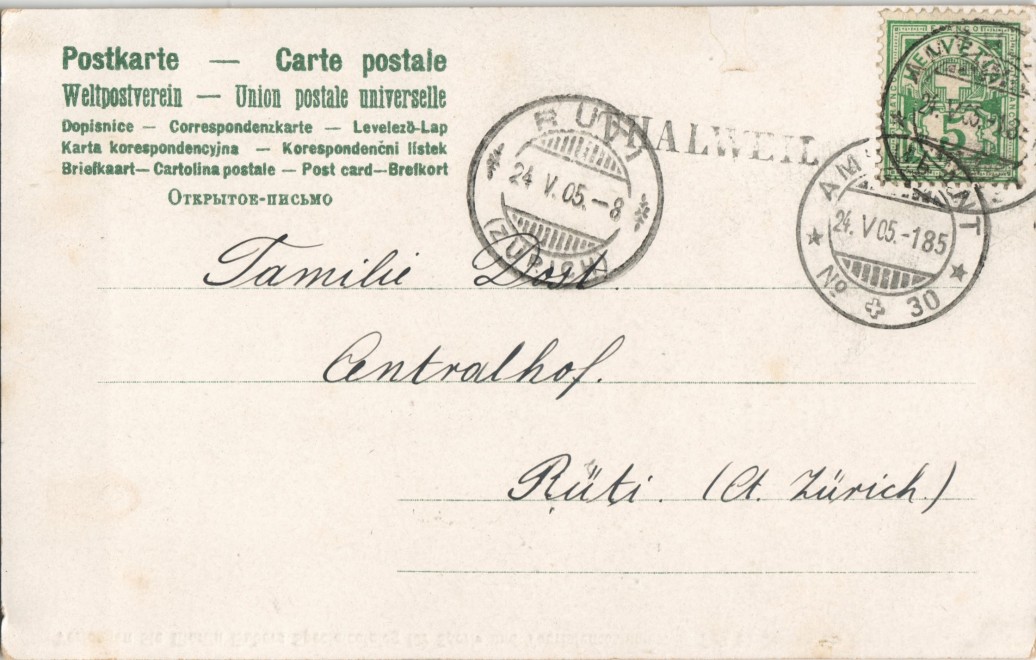 Postkarte — Carte postale
Weltpostverein — Union postale universelle
Dopisnice — Correspondenzkarte — Levelező-Lap
Karta korespondencyjna — Korespondenčni listek
Briefkaart — Cartolina postale — Post card — Brefkort
Открытое-письмо
RÜTI
24 V. 05. – 8
(ZÜRICH)
THALWEIL
HELVETIA
5
AMBULANT
24. V 05. – 185
No 30
Familie Dost.
Centralhof.
Rüti. (Ct. Zürich.)